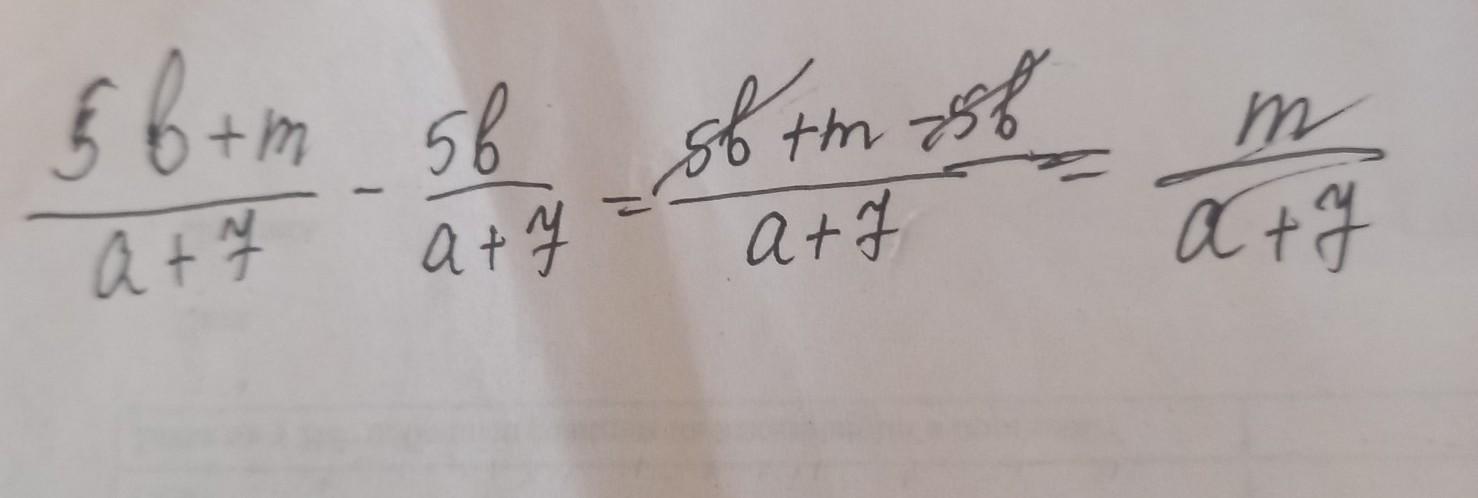 (5b+m)/(a+7) - 5b/(a+7) = (5b+m-5b)/(a+7) = m/(a+7)